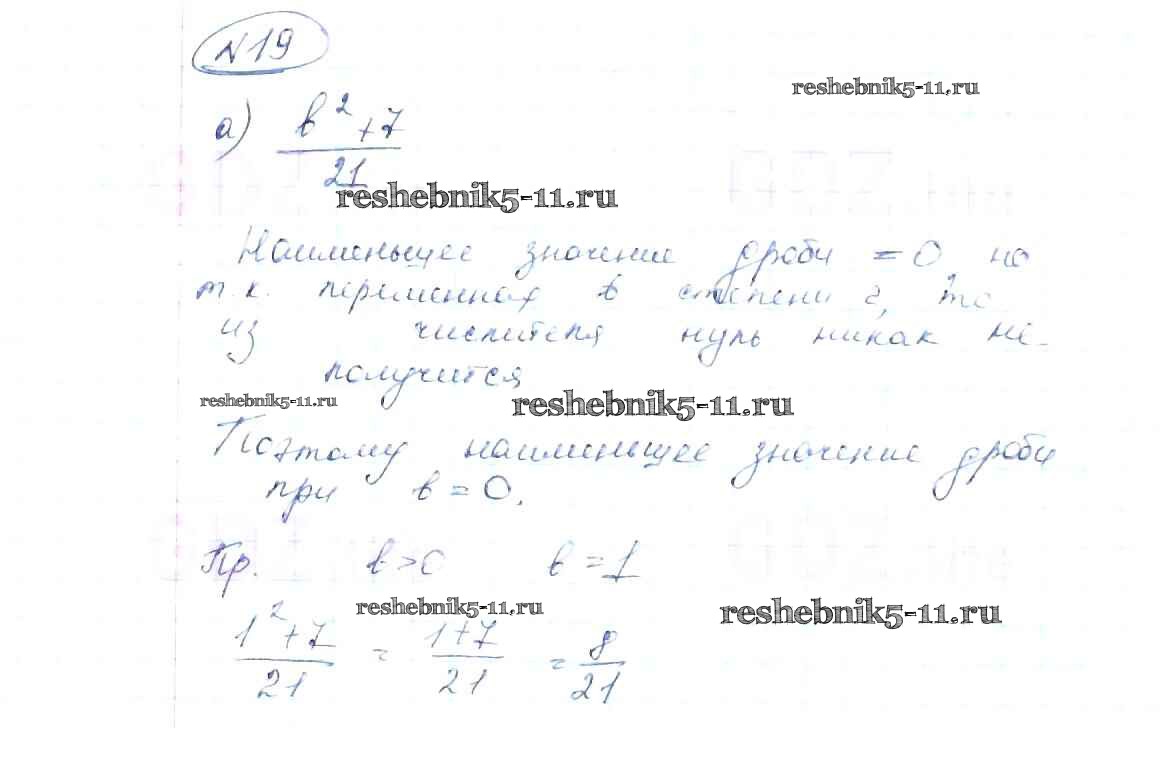 №19
reshebnik5-11.ru
а) (b² + 7)/21
reshebnik5-11.ru
Наименьщее значение дроби = 0, но
т.к. переменная b степени 2, то
из числителя нуль никак не
получится
reshebnik5-11.ru reshebnik5-11.ru
Поэтому наименьщее значение дроби
при b = 0.
Пр. b>0 b = 1
reshebnik5-11.ru reshebnik5-11.ru
(1² + 7)/21 = (1+7)/21 = 8/21